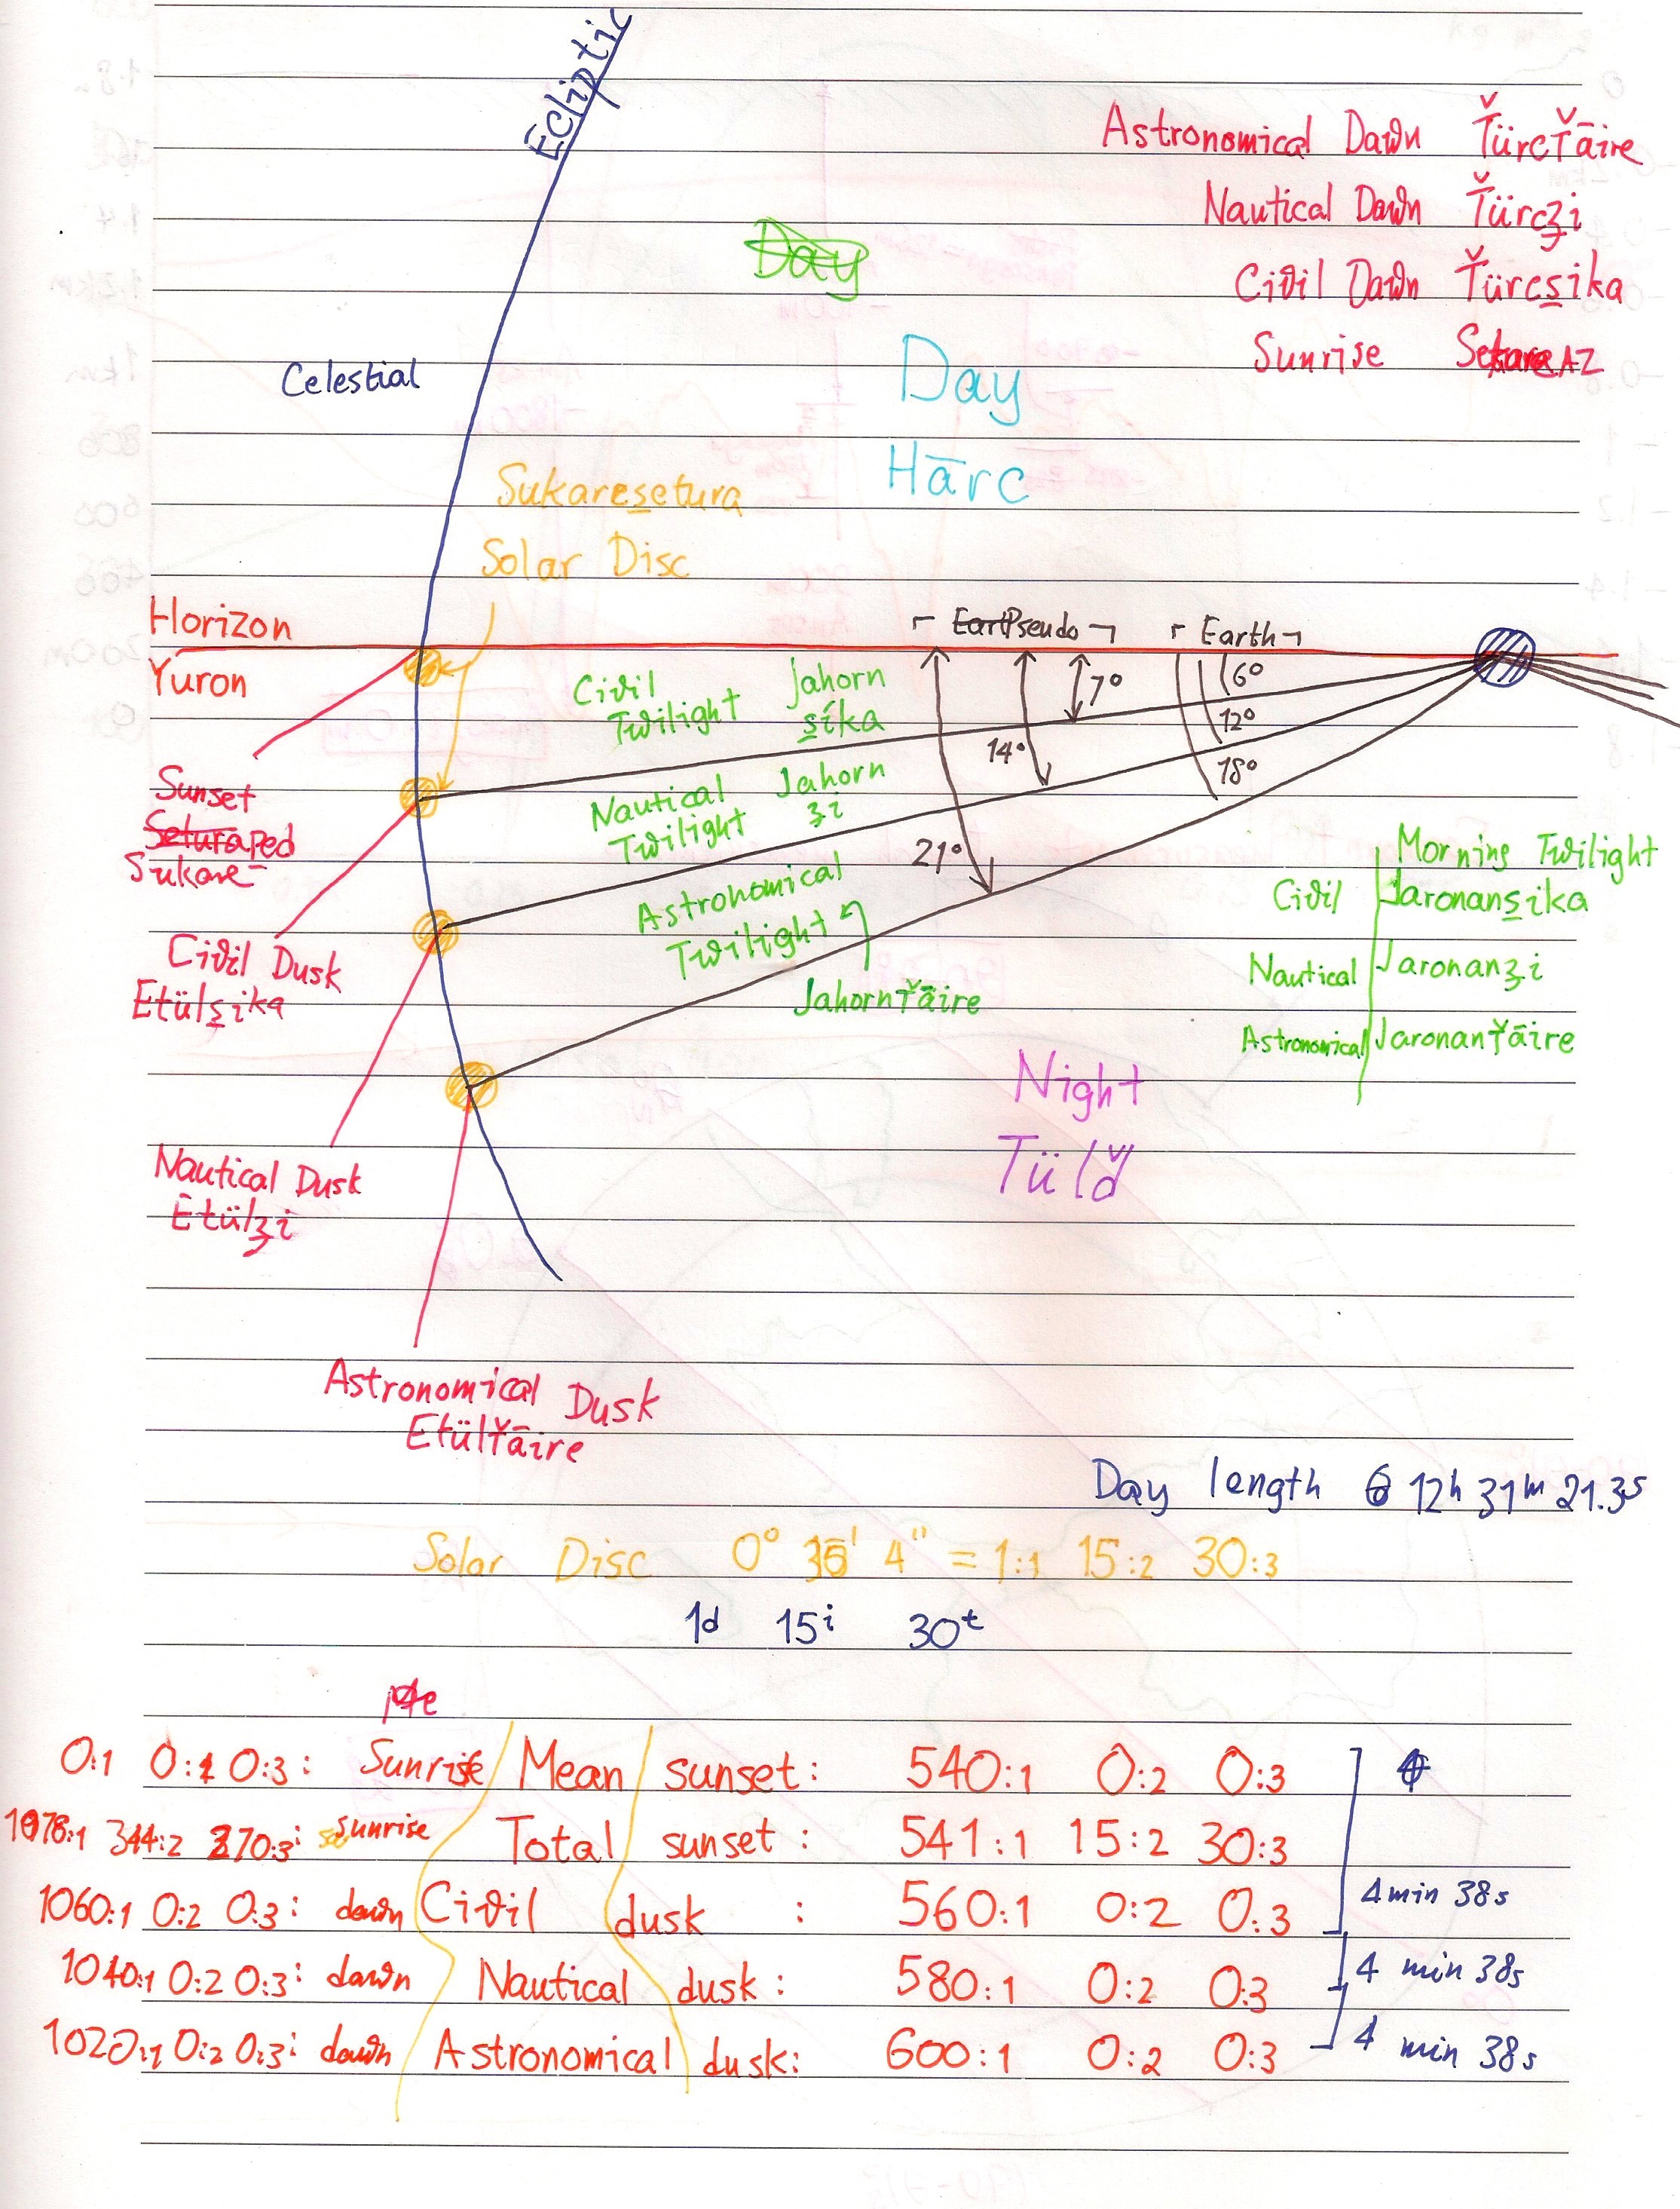 Ecliptic
Astronomical Dawn ŤürcŤāire
Nautical Dawn Ťürcʒi
Civil Dawn Ťürcs̱ika
Sunrise AZ
Day
Day
Hārc
Celestial
Sukares̱etura
Solar Disc
Horizon
Yuron
Pseudo
Earth
7° 6°
14° 12°
21° 18°
Civil Twilight Jahorn s̱ika
Nautical Twilight Jahorn ʒi
Astronomical Twilight
JahornŤāire
Sunset
Seturaped
Sukare
Civil Dusk
Etüls̱ika
Nautical Dusk
Etülʒi
Astronomical Dusk
EtülŤāire
Morning Twilight
Civil Jaronans̱ika
Nautical Jaronanʒi
Astronomical JaronanŤāire
Night
Tülď
Day length 12h 31m 21.3s
Solar Disc 0° 36' 4" = 1:1 15:2 30:3
1d 15i 30t
0:1 0:2 0:3: Sunrise Mean sunset: 540:1 0:2 0:3
1078:1 344:2 270:3: sunrise Total sunset: 541:1 15:2 30:3
1060:1 0:2 0:3: dawn Civil dusk : 560:1 0:2 0:3 4 min 38s
1040:1 0:2 0:3: dawn Nautical dusk: 580:1 0:2 0:3 4 min 38s
1020:1 0:2 0:3: dawn Astronomical dusk: 600:1 0:2 0:3 4 min 38s